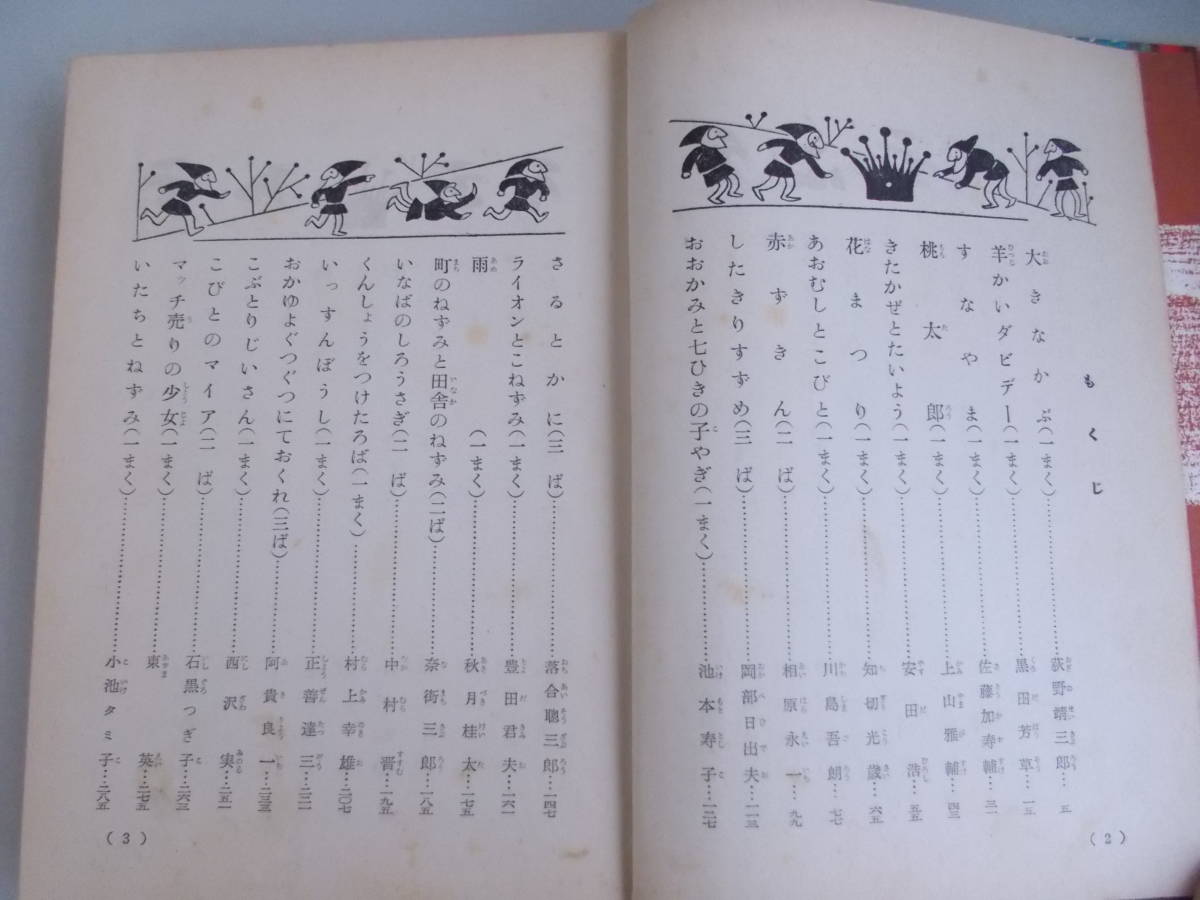 もくじ
大きなかぶ(一まく)…………荻野靖三郎…五
羊かいダビデー(一まく)…………黒田芳草…一五
すなやま(一まく)…………佐藤加寿輔…三一
桃太郎(一まく)…………上山雅輔…四三
きたかぜとたいよう(一まく)…………安田浩…五五
花まつり(一まく)…………知切光歳…六五
あおむしとこびと(一まく)…………川島吾朗…七七
赤ずきん(二ば)…………相原永一…九九
したきりすずめ(三ば)…………岡部日出夫…一一三
おおかみと七ひきの子やぎ(一まく)…………池本寿子…一二七
(2)
さるとかに(三ば)…………落合聰三郎…一四七
ライオンとこねずみ(一まく)…………豊田君夫…一六一
雨(一まく)…………秋月桂太…一七五
町のねずみと田舎のねずみ(二ば)…………奈街三郎…一八五
いなばのしろうさぎ(二ば)…………中村晋…一九五
くんしょうをつけたろば(一まく)…………村上幸雄…二〇七
いっすんぼうし(一まく)…………正善達三…二二一
おかゆよぐつぐつにておくれ(三ば)…………阿貴良一…二三三
こぶとりじいさん(一まく)…………西沢実…二五一
こびとのマイア(二ば)…………石黒つぎ子…二六三
マッチ売りの少女(一まく)…………東英…二七五
いたちとねずみ(一まく)…………小池タミ子…二八五
(3)